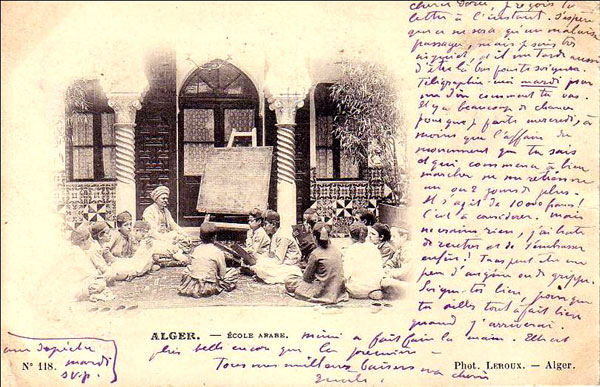 je reçois ta
lettre à l'instant. J'espère
que ce ne sera qu'un malaise
passager, mais je suis très
inquiet, et il me tarde aussi
d'être là bas pour te soigner.
Télégraphie-moi mardi pour
me dire comment tu vas.
Il y a beaucoup de chance
pour que je parte mercredi, à
moins que l'affaire du
monument que tu sais
et qui commence à bien
marcher ne me retienne
un ou 2 jours de plus.
Il s'agit de 10000 francs!
C'est à considérer. Mais
ne crains rien, j'ai hâte
de rentrer et de t'embrasser
enfin! Tu as peut être un
peu d'angine ou de grippe.
Soigne-toi bien, pour que
tu ailles tout à fait bien
quand j'arriverai.
ALGER. — ÉCOLE ARABE.
a fait faire la main. Elle est
plus belle encore que la première —
Tous mes meilleurs baisers ma chérie
dépêche
mardi
svp.
N° 118.
Phot. LEROUX. — Alger.